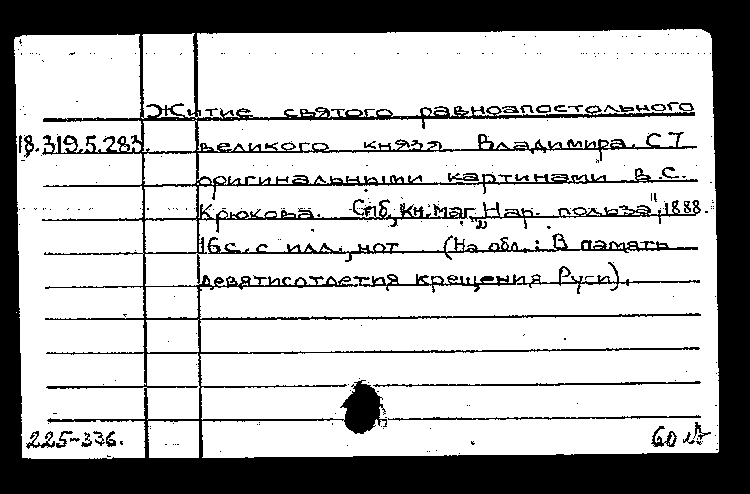 Житие святого равноапостольного
18.319.5.283. великого князя Владимира. С 7
оригинальными картинами В.С.
Крюкова. Спб, кн.маг. "Нар. польза", 1888.
16 с. с илл., нот (На обл.: В память
девятисотлетия крещения Руси).
225-336.
60